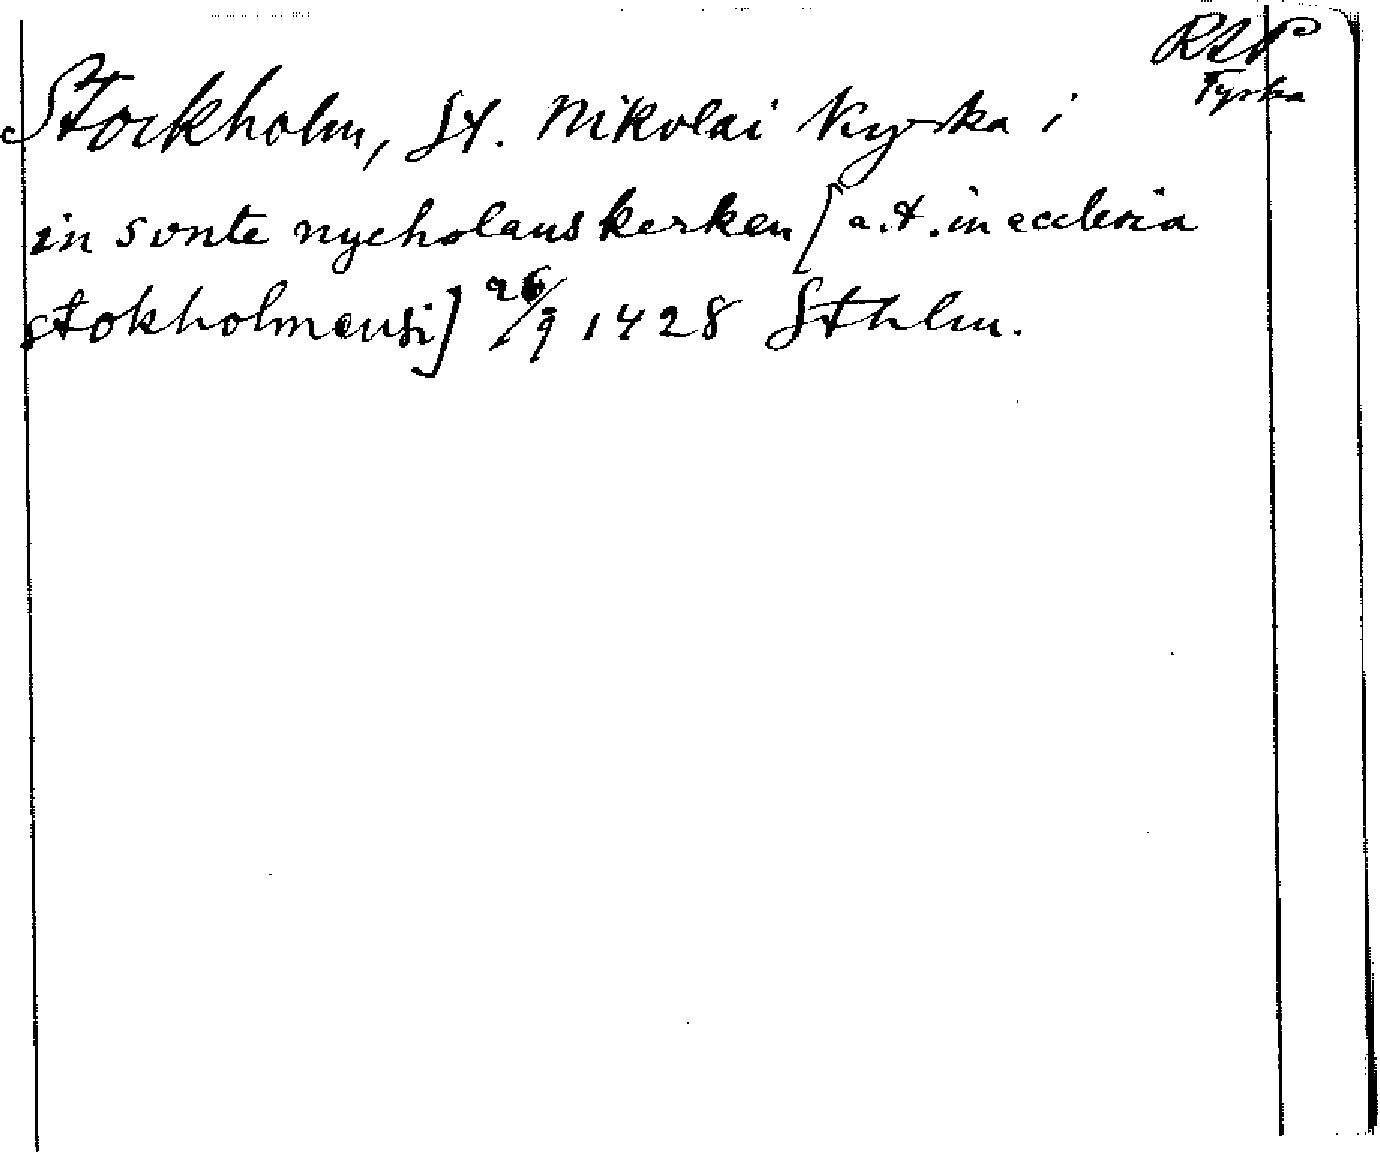 RAP
Tyska
Stockholm, St. Nikolai kyrka i
in sunte nycholaus kerken [a.t. in ecclesia
stokholmensi] 26/9 1428 Sthlm.